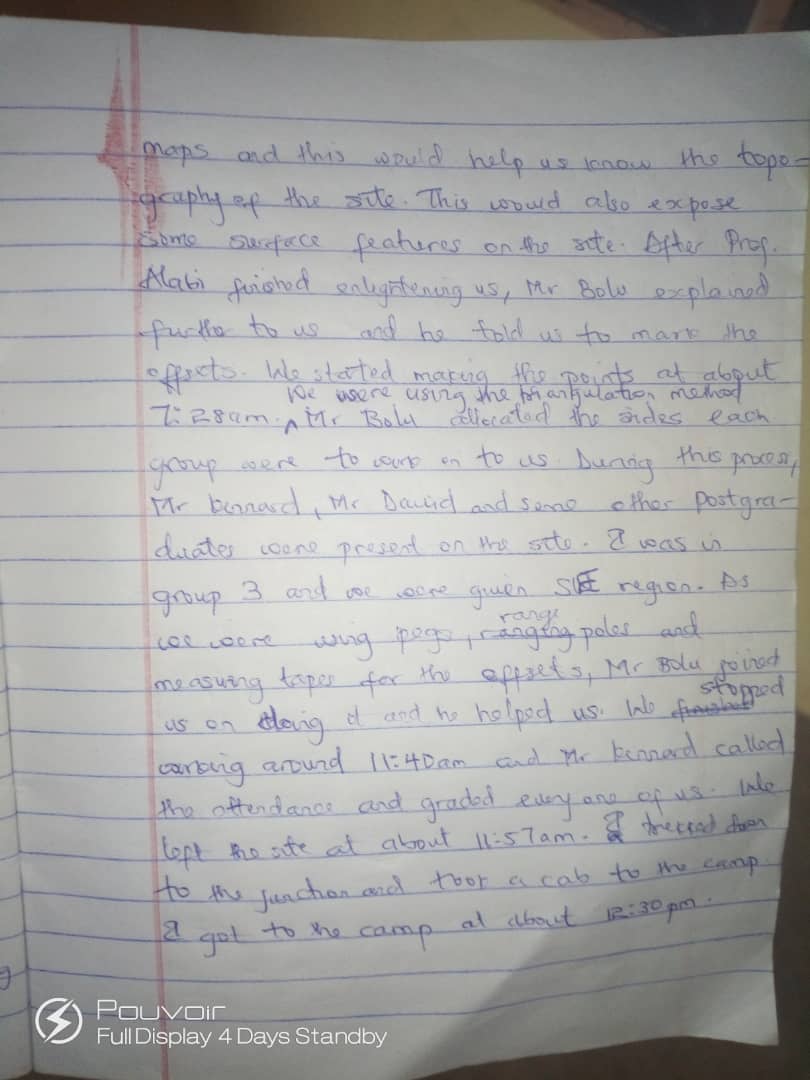 maps and this would help us know the topo-
graphy of the site. This would also expose
some surface features on the site. After Prof.
Alabi finished enlightening us, Mr Bolu explained
further to us and he told us to mark the
offsets. We started making the points at about
We were using the triangulation method
7:28am. ^ Mr Bolu allocated the sides each
group were to work on to us. During this process,
Mr bennard, Mr David and some other Postgra-
duates were present on the site. I was in
group 3 and we were given SE region. As
range
we were using pegs, ranging poles and
measuring tapes for the offsets, Mr Bolu joined
us on doing it and he helped us. We stopped
working around 11:40am and Mr bennard called
the attendance and graded every one of us. We
left the site at about 11:57am. I trekked down
to the junction and took a cab to the camp.
I got to the camp at about 12:30pm.
Pouvoir
Full Display 4 Days Standby